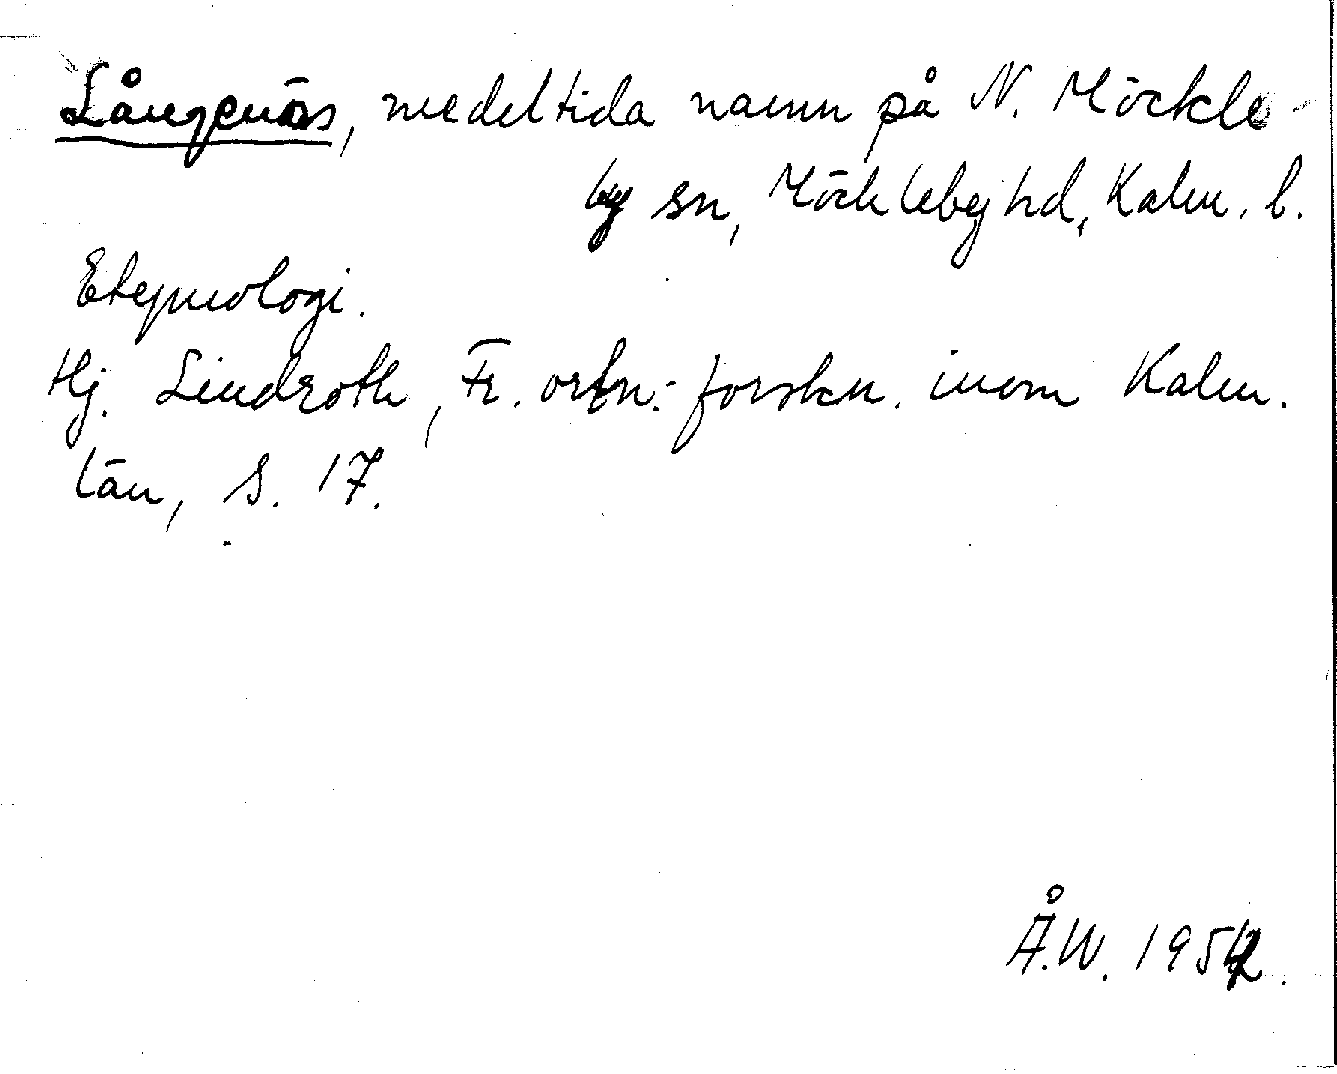 Långenäs, medeltida namn på N. Möckle-
by sn, Möckleby hd, Kalm. l.
Etymologi.
Hj. Lindroth, Fr. ortn.-forskn. inom Kalm.
län, S. 17.
Å.W. 1952.